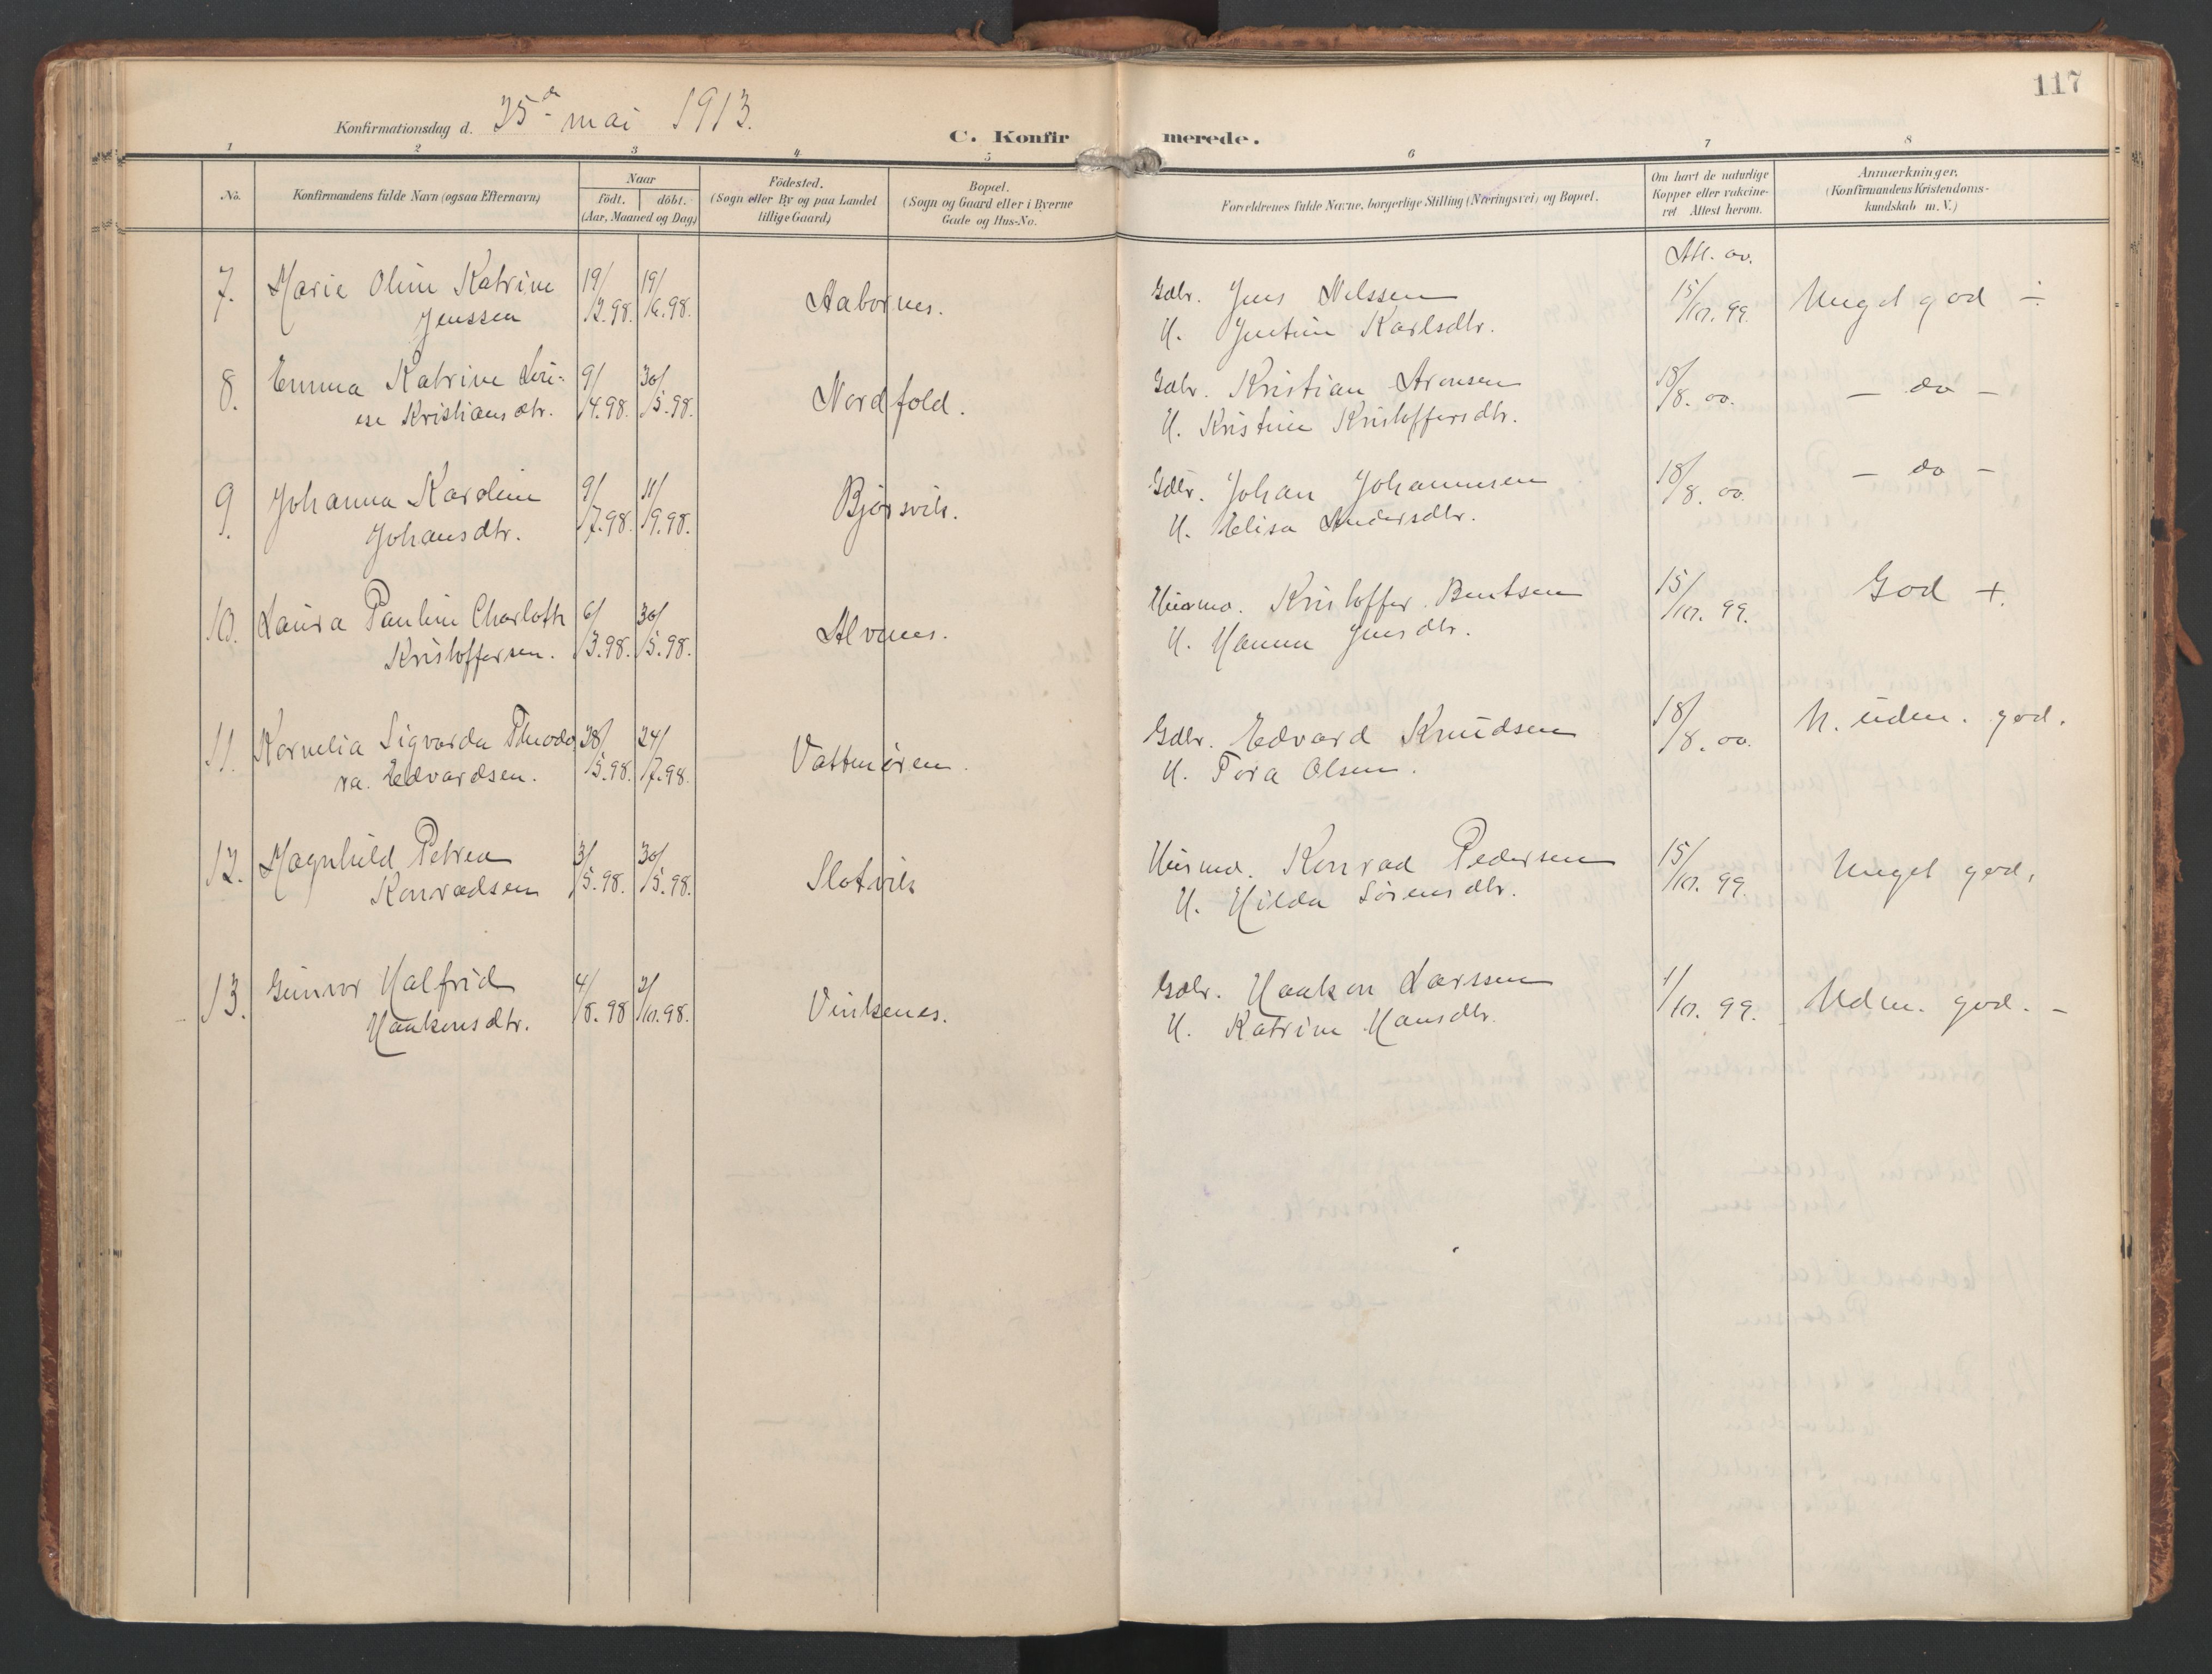 117
Konfirmationsdag d. 25de mai 1913.
C. Konfirmerede.
1 2 3 4 5 6 7 8
No.
Konfirmandens fulde Navn (ogsaa Efternavn)
Naar
födt. döbt.
(Aar, Maaned og Dag)
Födested.
(Sogn eller By og paa Landet
tillige Gaard)
Bopæl.
(Sogn og Gaard eller i Byerne
Gade og Hus-No.
Forældrenes fulde Navne, borgerlige Stilling (Næringsvei) og Bopæl.
Om havt de naturlige
Kopper eller vakcine-
ret Attest herom.
Anmærkninger.
(Konfirmandens Kristendoms-
kundskab m. V.)
Att. av.
7. Marie Oline Katrine 19/ 19/
Jenssen /3.98. /6.98. Aabornes.
Gdbr. Jens Nilssen
H. Jentine Karlsdtr.
15/10. 99. Meget god ÷
8. Emma Katrine Lovi- 9/ 30/
ese Kristiansdtr. /4.98. /5.98. Nordfold.
Gdbr. Kristian Aronsen
H. Kristine Kristoffersdtr.
18/8. 00. – do –
9. Johanna Karoline 9/ 11/
Johansdtr. /7.98. /9.98. Bjørsvik.
Gdbr. Johan Johannesen
H. Elisa Andersdtr.
18/8. 00. – do –
10. Laura Pauline Charlotte 6/ 30/
Kristoffersen. /3.98. /5.98. Alvenes.
Husmd. Kristoffer Bentsen
H. Hanna Jensdtr.
15/10. 99. God +.
11. Kornelia Sigvarda Theodo 28/ 24/
ra. Edvardsen. /5.98. /7.98. Vattmøren.
Gdbr. Edvard Knudsen
H. Tora Olsen.
18/8. 00. N. uden. god.
12. Magnhild Petrea 3/ 30/
Konradsen /5.98. /5.98. Slotvik
Husmd. Konrad Pedersen
H. Hilda Sørensdtr.
15/10. 99. Meget god.
13. Gunvor Halfrid 4/ 2/
Haakensdtr. /8.98 /10.98. Vinkenes.
Gdbr. Haaken Larssen
H. Katrine Hansdtr.
1/10. 99. Udm. god. –